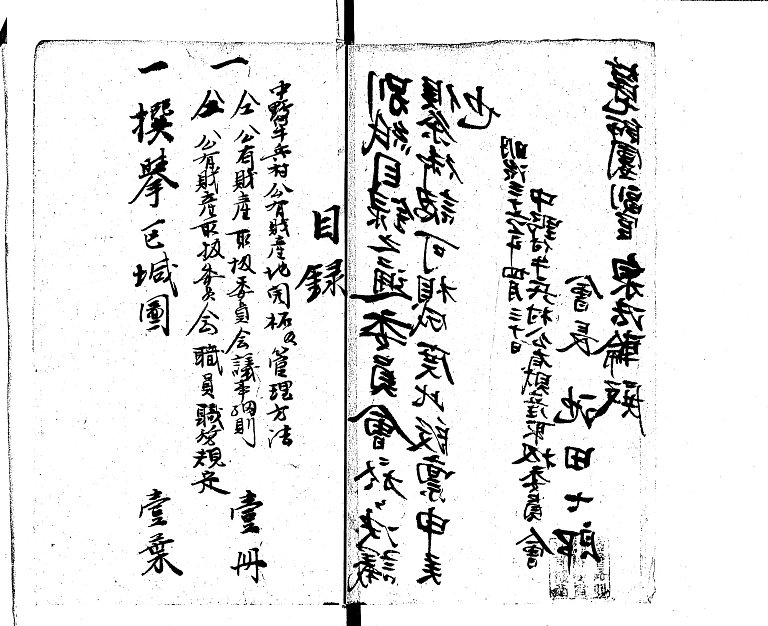 別紙目録之通委員會ニ於テ決議
候条御認可相成度此段禀申
候也
明治三十六年四月三十日
中野付牛兵村公有財産取扱委員會
會長 池田七郎
師團副官 殿
目録
中野付牛兵村公有財産地開拓及管理方法
一 仝 公有財産取扱委員会議事細則 壹冊
仝 公有財産取扱委員会職員職務規定
一 撰挙区域圖 壹葉